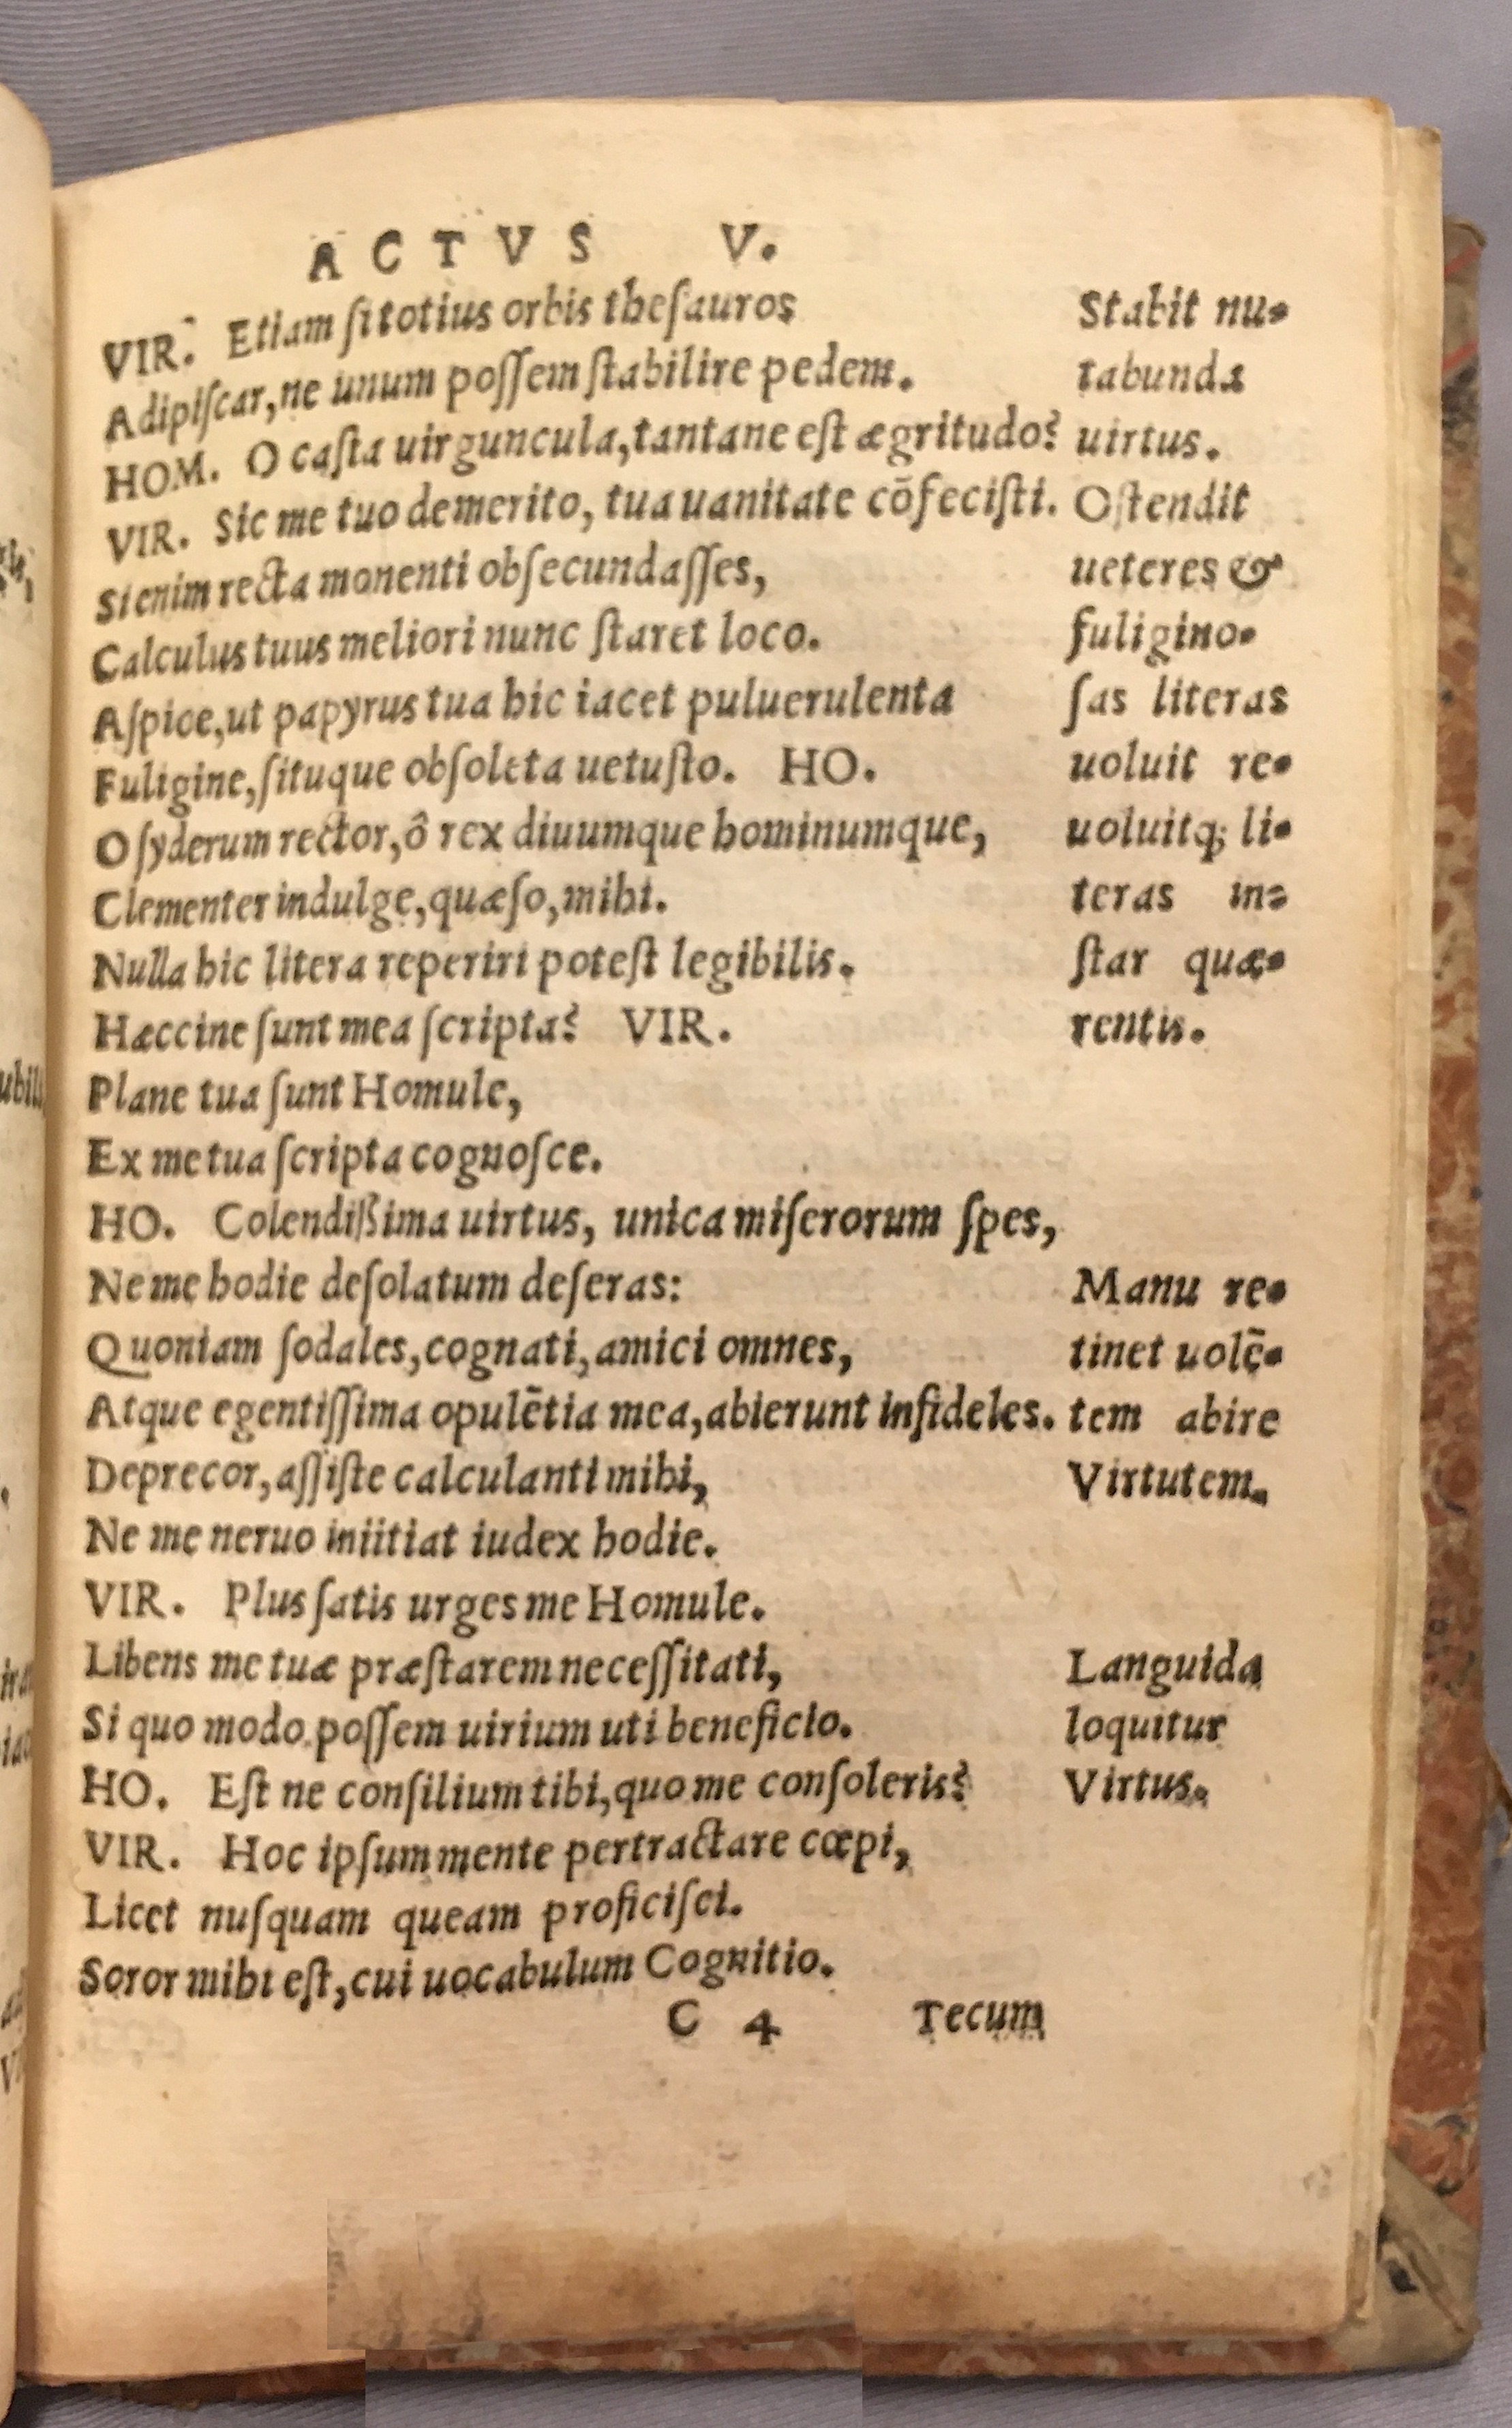 ACTVS V.
VIR. Etiam ſi totius orbis theſauros
Adipiſcar, ne unum poſſem ſtabilire pedem.
HOM. O caſta uirguncula, tantane eſt ægritudo?
VIR. Sic me tuo demerito, tua uanitate cōfeciſti.
Si enim recta monenti obſecundaſſes,
Calculus tuus meliori nunc ſtaret loco.
Aſpice, ut papyrus tua hic iacet puluerulenta
Fuligine, ſituque obſoleta uetuſto. HO.
O ſyderum rector, ô rex diuumque hominumque,
Clementer indulge, quæſo, mihi.
Nulla hic litera reperiri poteſt legibilis.
Hæccine ſunt mea ſcripta? VIR.
Plane tua ſunt Homule,
Ex me tua ſcripta cognoſce.
HO. Colendißima uirtus, unica miſerorum ſpes,
Ne me hodie deſolatum deſeras:
Quoniam ſodales, cognati, amici omnes,
Atque egentiſſima opulētia mea, abierunt infideles.
Deprecor, aſſiſte calculanti mihi,
Ne me neruo iniitiat iudex hodie.
VIR. Plus ſatis urges me Homule.
Libens me tuæ præſtarem neceſſitati,
Si quo modo poſſem uirium uti beneficio.
HO. Eſt ne conſilium tibi, quo me conſoleris?
VIR. Hoc ipſum mente pertractare cœpi,
Licet nuſquam queam proficiſci.
Soror mihi eſt, cui uocabulum Cognitio.
C 4 Tecum
Stabit nu-
tabunda
uirtus.
Oſtendit
ueteres &
fuligino-
ſas literas
uoluit re-
uoluitq; li-
teras in-
ſtar quæ-
rentis.
Manu re-
tinet uolē-
tem abire
Virtutem.
Languida
loquitur
Virtus.